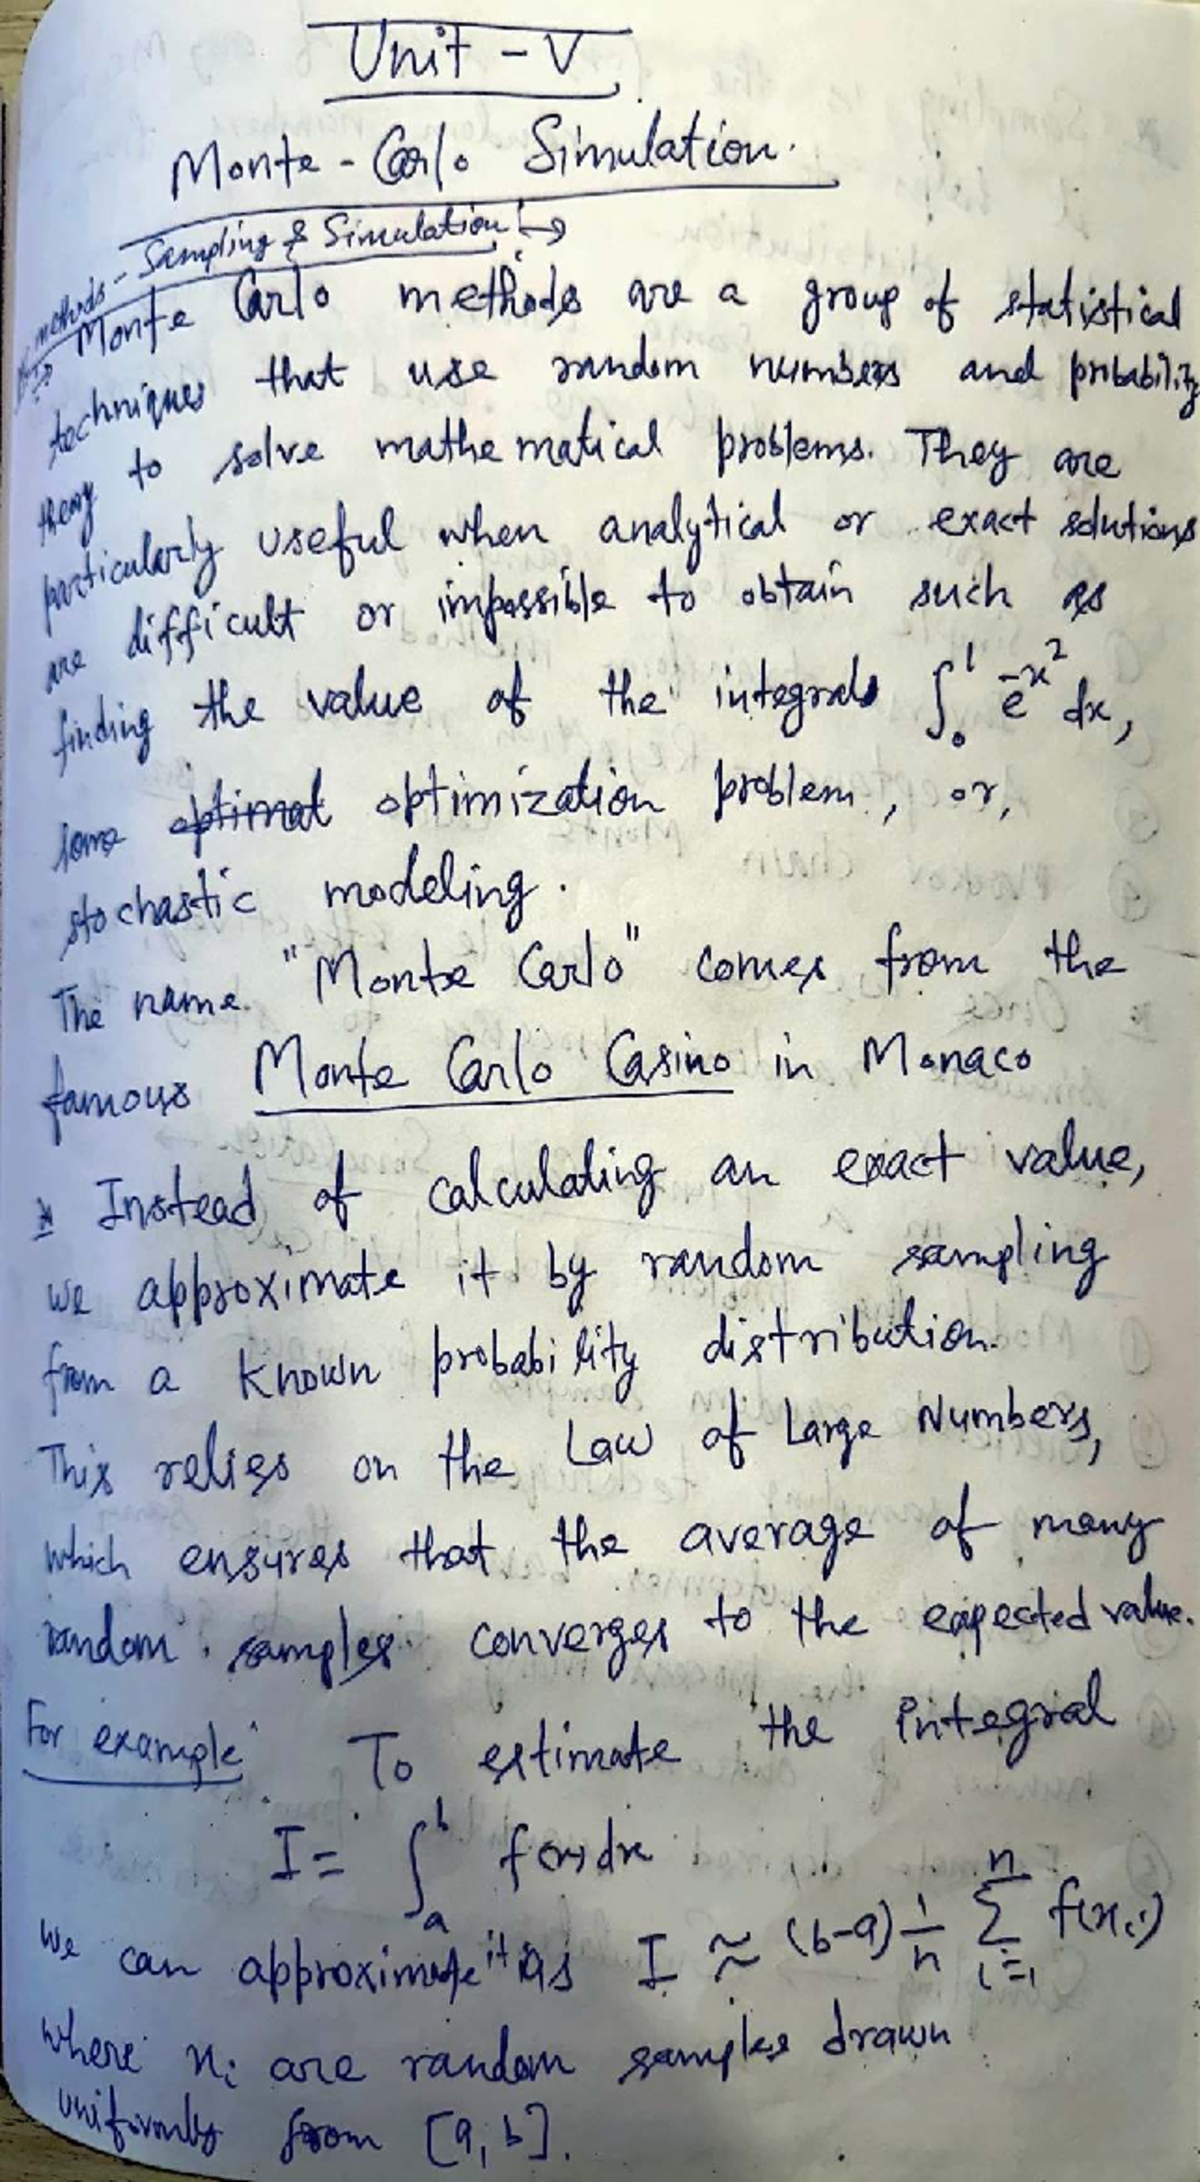 Unit - V
Monte - Carlo Simulation.
methods - Sampling & Simulation :→
Monte Carlo methods are a group of statistical
techniques that use random numbers and probability
theory to solve mathematical problems. They are
particularly useful when analytical or exact solutions
are difficult or impossible to obtain such as
finding the value of the integrals ∫₀¹ e^{-x²} dx,
some optimal optimization problem, or,
stochastic modeling.
The name "Monte Carlo" comes from the
famous Monte Carlo Casino in Monaco
* Instead of calculating an exact value,
we approximate it by random sampling
from a known probability distribution.
This relies on the Law of Large Numbers,
which ensures that the average of many
random samples converges to the expected value.
For example: To estimate the integral
I = ∫_a^b f(x) dx
we can approximate it as I ≈ (b-a) 1/n Σ_{i=1}^n f(x_i)
where x_i are random samples drawn
uniformly from [a, b].